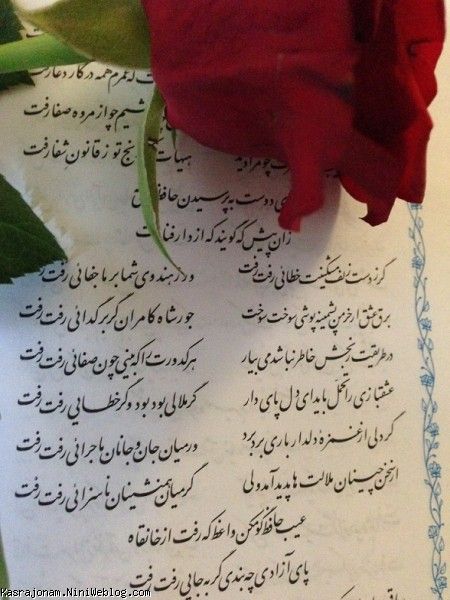 که عمرم همه در کار دعا رفت
چو از مروه صفا رفت
چو مرا دید هیهات تو ز قانون شفا رفت
ای دوست به پرسیدن حافظ
زان پیش که گویند که از دار فنا
گر ز دست زلف مشکینت خطائی رفت رفت ور ز هندوی شما بر ما جفائی رفت رفت
برق عشق ار خرمن پشمینه پوشی سوخت سوخت جور شاه کامران گر بر گدائی رفت رفت
در طریقت رنجش خاطر نباشد می بیار هر کدورت را که بینی چون صفائی رفت رفت
عشقبازی را تحمل باید ای دل پای دار گر ملالی بود بود و گر خطایی رفت رفت
گر دلی از غمزهٔ دلدار باری برد برد ور میان جان و جانان ماجرائی رفت رفت
از سخن چینان ملالت ها پدید آمد ولی گر میان همنشینان ناسزائی رفت رفت
عیب حافظ گو مکن واعظ که رفت از خانقاه
پای آزادی چه بندی گر به جایی رفت رفت
Kasrajonam.NiniWeblog.com